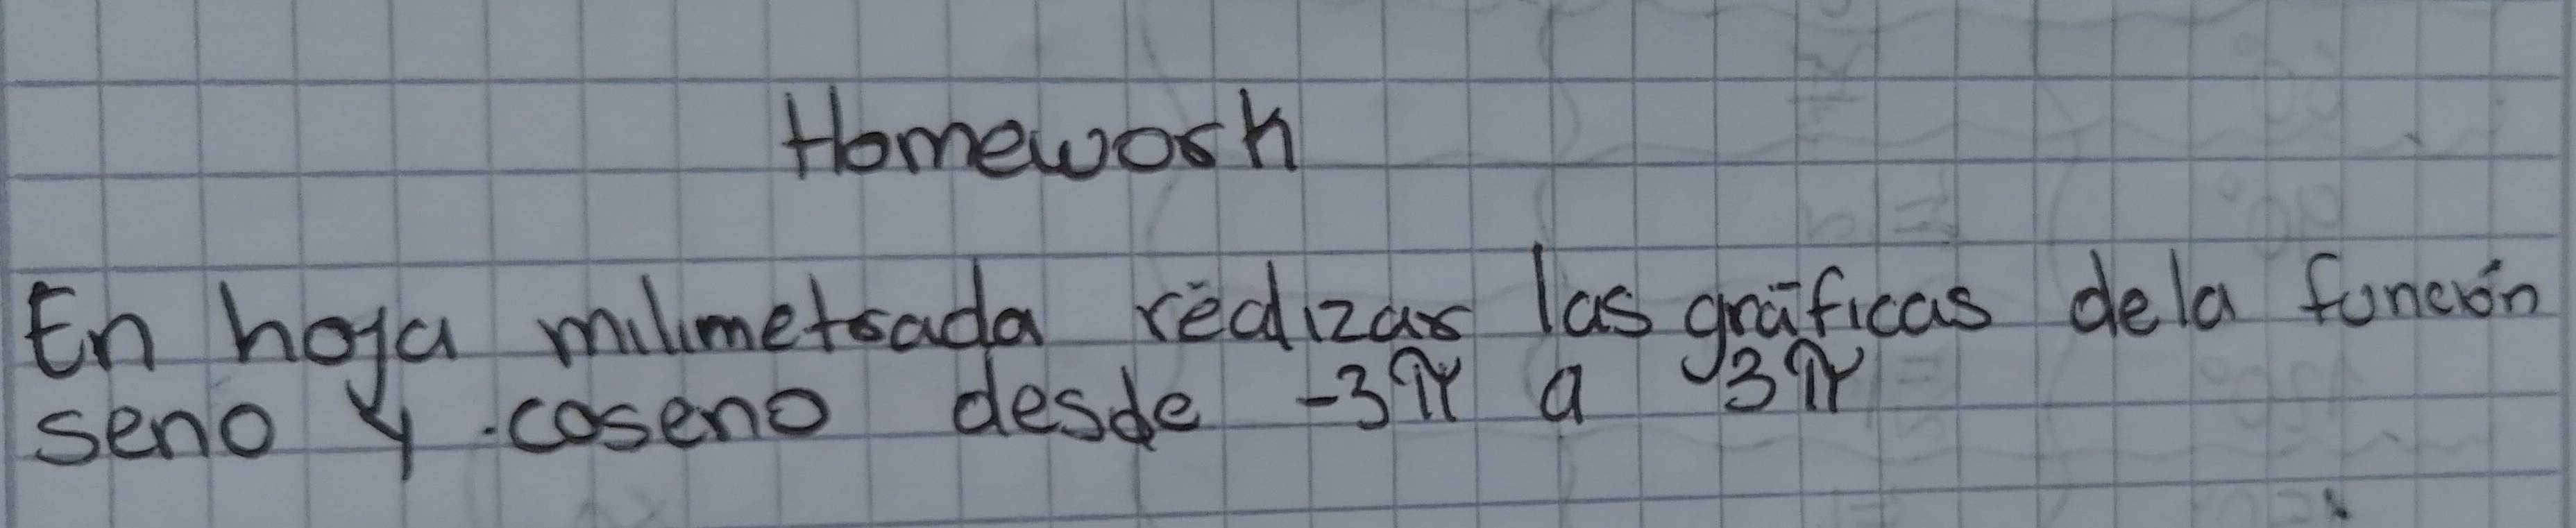 Homework
En hoja milimetrada realizar las gráficas de la función
seno y coseno desde -3π a 3π